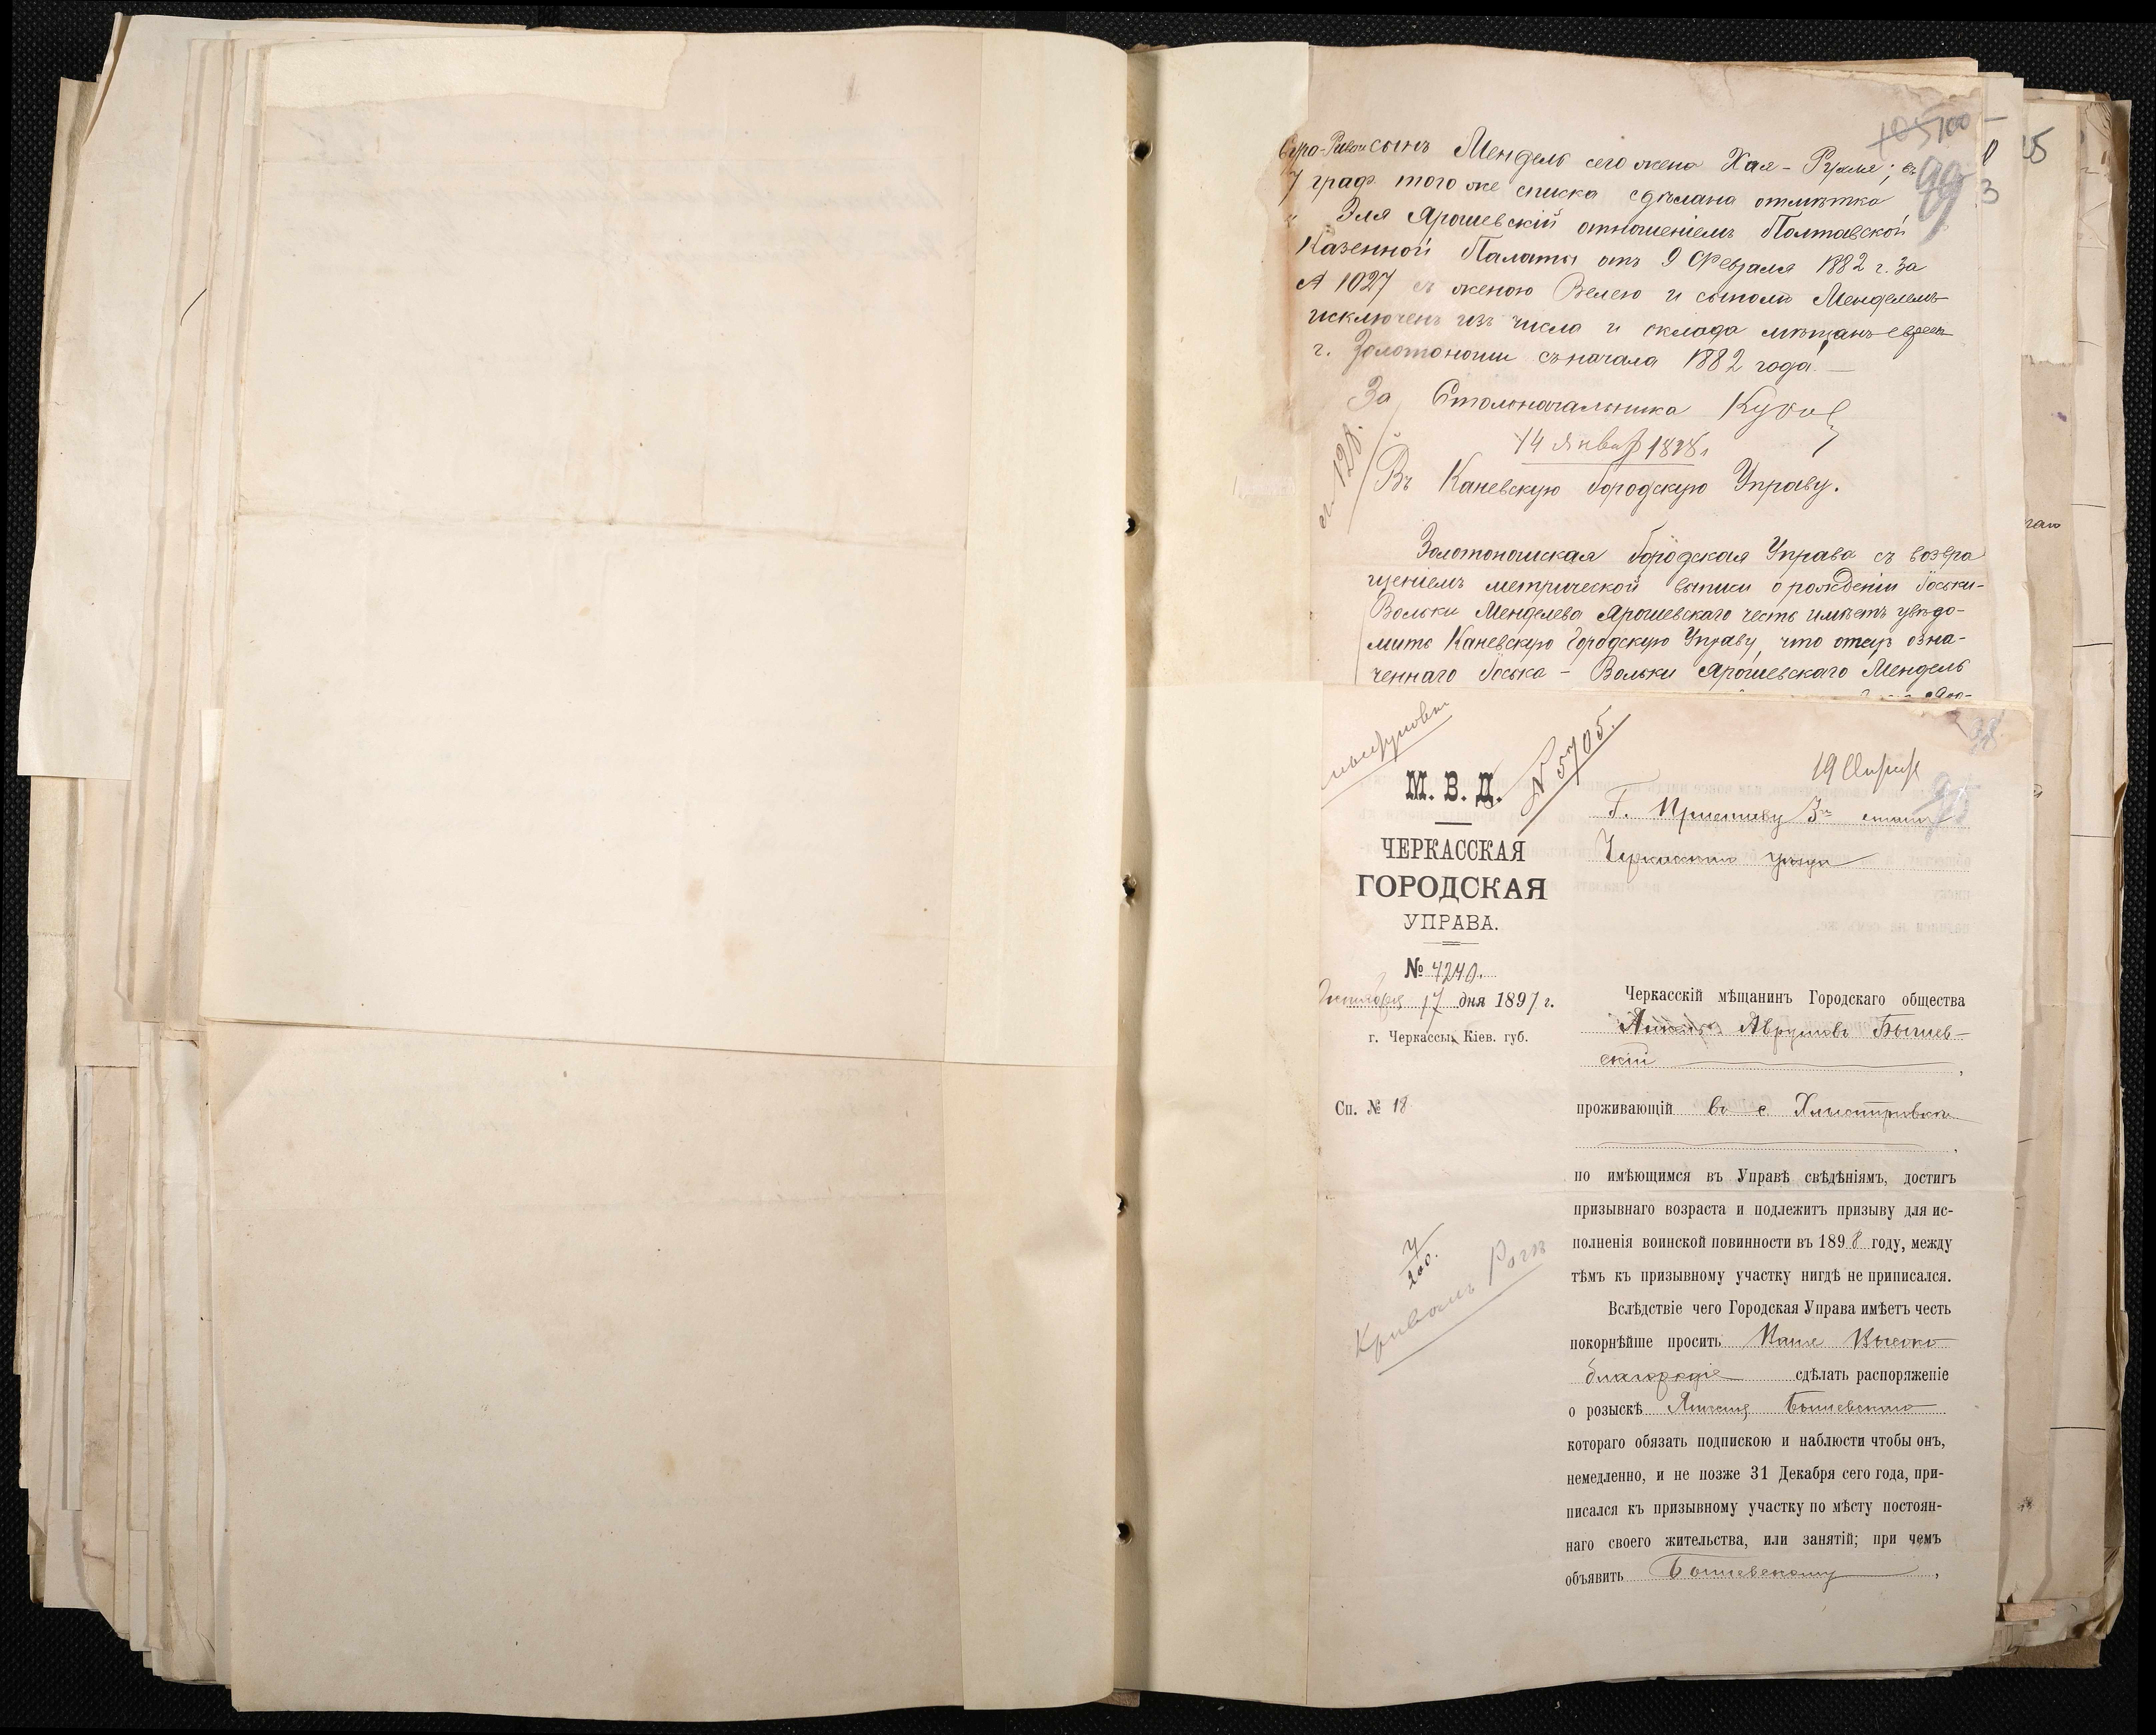 сынъ Мендель его жена Хая-Рухля; въ
7 граф. того же списка сдѣлана отмѣтка
„ Эля Ярошевскій отношеніемъ Полтавской
Казенной Палаты отъ 9 Февраля 1882 г. за
№ 1027 съ женою Велею и сыномъ Менделемъ
исключенъ изъ числа и оклада мѣщанъ евреевъ
г. Золотоноши съ начала 1882 года.
За Столоначальника
14 Янва 1898 г.
Въ Каневскую Городскую Управу.
Золотоношская Городская Управа съ возвра
щеніемъ метрической выписи о рожденіи Іоськи-
Вольки Менделева Ярошевскаго честь имѣетъ увѣдо-
мить Каневскую Городскую Управу, что отецъ озна-
ченнаго Іоська - Вольки Ярошевскаго Мендель
105 100
99
№ 128.
N 5705.
М. В. Д.
ЧЕРКАССКАЯ
ГОРОДСКАЯ
УПРАВА.
№ 4240.
Октября 17 дня 1897 г.
г. Черкассы, Кіев. губ.
Сп. № 18
Кривомъ Рогѣ
19
Г. Приставу 3го стана
Черкасскаго уѣзда
Черкасскій мѣщанинъ Городскаго общества
Аврумовъ Бышев-
скій
проживающій въ с Хлыстуновкѣ
по имѣющимся въ Управѣ свѣдѣніямъ, достигъ
призывнаго возраста и подлежитъ призыву для ис-
полненія воинской повинности въ 1898 году, между
тѣмъ къ призывному участку нигдѣ не приписался.
Вслѣдствіе чего Городская Управа имѣетъ честь
покорнѣйше просить Ваше Высоко
благородіе сдѣлать распоряженіе
о розыскѣ Бышевскаго
котораго обязать подпискою и наблюсти чтобы онъ,
немедленно, и не позже 31 Декабря сего года, при-
писался къ призывному участку по мѣсту постоян-
наго своего жительства, или занятій; при чемъ
объявить Бышевскому